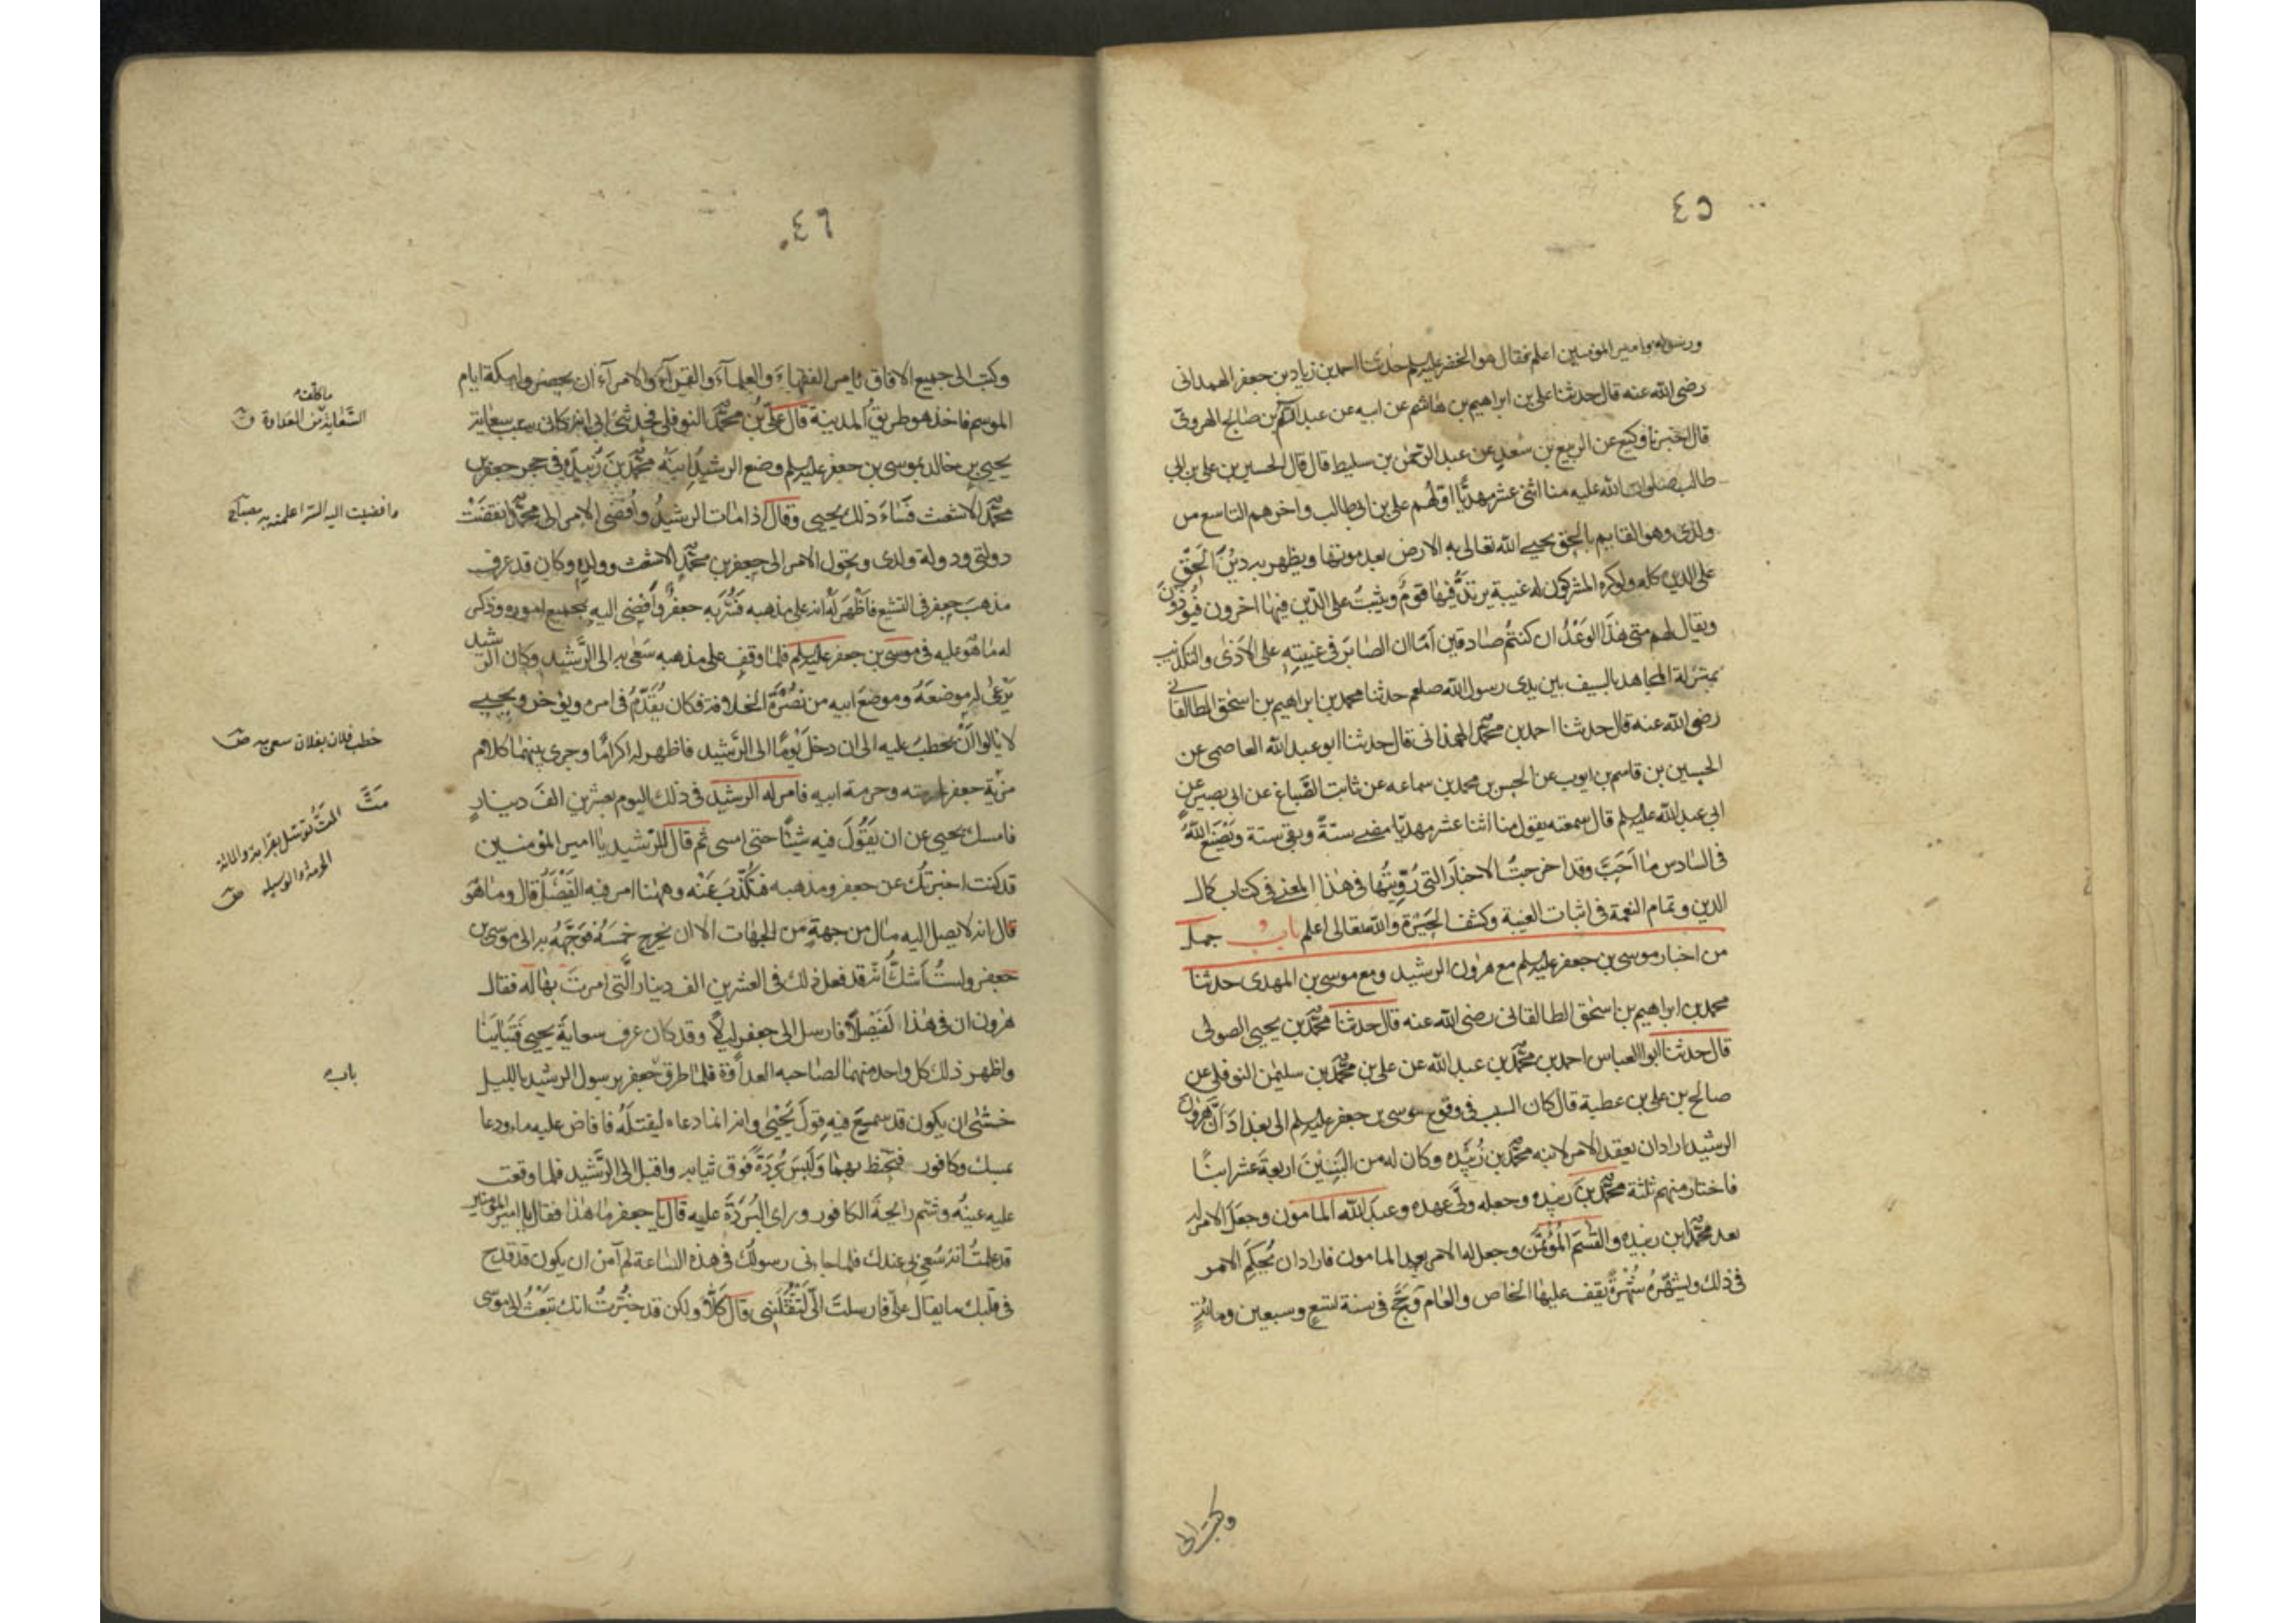 ٤٥
ورسوله وامير المؤمنين اعلم فقال هو الخضر عليه السلم حدثنا احمد بن زياد بن جعفر الهمداني
رضي الله عنه قال حدثنا علي بن ابراهيم بن هاشم عن ابيه عن عبد السلم بن صالح الهروي
قال اخبرنا وكيع عن الربيع بن سعد عن عبد الرحمن بن سليط قال قال الحسين بن علي بن ابي
طالب صلوات الله عليه منا اثنى عشر مهديًّا اوّلهم علي بن ابي طالب واخرهم التاسع من
ولدي وهو القايم بالحق يحيي الله تعالى به الارض بعد موتها ويظهر به دينُ الحَقّ
على الدين كله ولو كره المشركون له غيبة يرتدّ فيها قومٌ ويثبتُ على الدّين فيها اخرون فيُوذَونَ
ويقال لهم متى هذا الوَعْدُ ان كنتُم صادقين اَمّا ان الصابرَ في غيبتِهِ على الاَذى والتكذيب
بمنزلة المجاهد بالسيف بين يدي رسول الله صلعم حدثنا محمد بن ابراهيم بن اسحق الطالقاني
رضي الله عنه قال حدثنا احمد بن محمّد الهمذاني قال حدثنا ابو عبد الله العاصمي عن
الحسين بن قاسم بن ايوب عن الحسن بن محمد بن سماعه عن ثابت الصّباغ عن ابي بصير عن
ابي عبد الله عليه السلم قال سمعته يقول منا اثنا عشر مهديّا مضى ستةٌ وبقي ستة ويَصْنَع اللهُ
في السّادس ما اَحَبَّ وقد اخرجتُ الاخبارَ التي رُوّيتُها في هذا المعنى في كتاب كمال
الدين وتمام النعمة في اثبات الغيبة وكشف الحَيْرَة والله تعالى اعلم باب جمل
من اخبار موسى بن جعفر عليه السلم مع هرون الرشيد ومع موسى بن المهدى حدثنا
محمد بن ابراهيم بن اسحق الطالقاني رضي الله عنه قال حدثنا محمّد بن يحيى الصولي
قال حدثنا ابو العباس احمد بن محمّد بن عبد الله عن علي بن محمّد بن سليمن النوفلي عن
صالح بن علي بن عطية قال كان السبب في وقوع موسى بن جعفر عليه السلم الى بغداذ اَنّ هرون
الرشيد اراد ان يعقد الامر لابنه محمّد بن زُبيده وكان له من البَنِيْنَ اربعةَ عشر ابنًا
فاختار منهم ثلثة محمّد بن زبيده وجعله وليّ عهده وعبد الله المامون وجعل الامر له
بعد محمّد بن زبيده والقسم المؤتمَن وجعل له الامر بعد المامون فاراد ان يُحكِمَ الامر
في ذلك ويشهّرهُ شُهْرَةً يقف عليها الخاص والعام فحَجَّ في سنة تسعٍ وسبعين ومائةٍ
وكتب الى
٤٦
وكتب الى جميع الافاق يامر الفقهاءَ والعلمآءَ والقرآءَ والامرآءَ ان يحضروا مكة ايام
الموسم فاخذ هو طريق المدينة قال عليّ بنُ محمّد النوفلي فحدثني ابي انه كان سبب سعاية
يحيى بن خالد بموسى بن جعفر عليه السلم وضع الرشيدُ ابنَه محمّدَ بنَ زُبيدة في حجر جعفر بن
محمّد الاشعث فَساءَ ذلك يحيى وقال اذا مات الرشيدُ واُفضى الامر الى محمّد انقضَتْ
دولتي ودولة ولدى وتحول الامر الى جعفر بن محمّد الاشعث وولده وكان قد عرف
مذهبَ جعفر في التشيع فاَظْهَرَ لَهُ انه على مذهبه فَسُرَّ به جعفرٌ واَفضى اليه بجميع اموره وذكر
له ما هو عليه في موسى بن جعفر عليه السلم فلما وقف على مذهبه سَعٰى به الى الرّشيد وكان الرشيد
يَرْعٰى له موضعَهُ وموضعَ ابيه من نُصْرَة الخلافة فكان يُقَدّمُ في امره ويؤخر ويحيى
لا يالوا اَنْ يخطبَ عليه الى ان دخلَ يَومًا الى الرّشيد فاظهر له اكرامًا وجرى بينهما كلام
مزية جعفر لحرمته وحرمة ابيه فامر له الرشيد في ذلك اليوم بعشرين الفَ دينارٍ
فامسك يحيى عن ان يَقُوْلَ فيه شيئًا حتى امسى ثم قال للرّشيد يا امير المؤمنين
قد كنت اخبرتُك عن جعفر ومذهبه فتُكَذّبُ عَنْه وههنا امر فيه الفَيْصَلُ قال وما هُوَ
قال انه لا يصل اليه مال من جهةٍ من الجهات الّا ان يخرج خمسَهُ فوجّهُ به الى موسى بن
جعفر ولستُ اَشكُّ انّه قد فعل ذلك في العشرين الف دينار الّتي امرتَ بها له فقال
هرون ان في هذا لَفَيْصَلًا فارسل الى جعفرٍ ليلًا وقد كان عرف سعايةَ يحيى فتباينا
واظهر ذلك كل واحد منهما لصاحبه العداوة فلما طرق جعفر رسول الرشيد بالليل
خشى ان يكون قد سميعَ فيه قولَ يَحْيٰى وانه انما دعاه ليقتلَهُ فافاض عليه ماء ودعا
بمسك وكافور فتحنّط بهما ولَبِسَ بُرْدَةً فوق ثيابه واقبل الى الرّشيد فلما وقعت
عليه عينُه وشم رايحةَ الكافور وراى البُردَةَ عليه قال يا جعفر ما هذا فقال يا امير المؤمنين
قد علمتُ انّه سُعِيَ بي عندك فلما جاءني رسولك في هذه الساعة لم آمن ان يكون قد قدح
في قلبك ما يقال عليّ فارسلتَ اليّ لتَقْتُلَني قال كَلّا ولكن قد خُبّرتُ انك تبعثُ الى موسى
السّعاية من العداوة
وافضيت اليه السر اعلمته به مصباح
خطب فلان بفلان سعى به
مَتَّ
المتّ توسّل بقرابة والماتة
الحرمة والوسيلة
باب